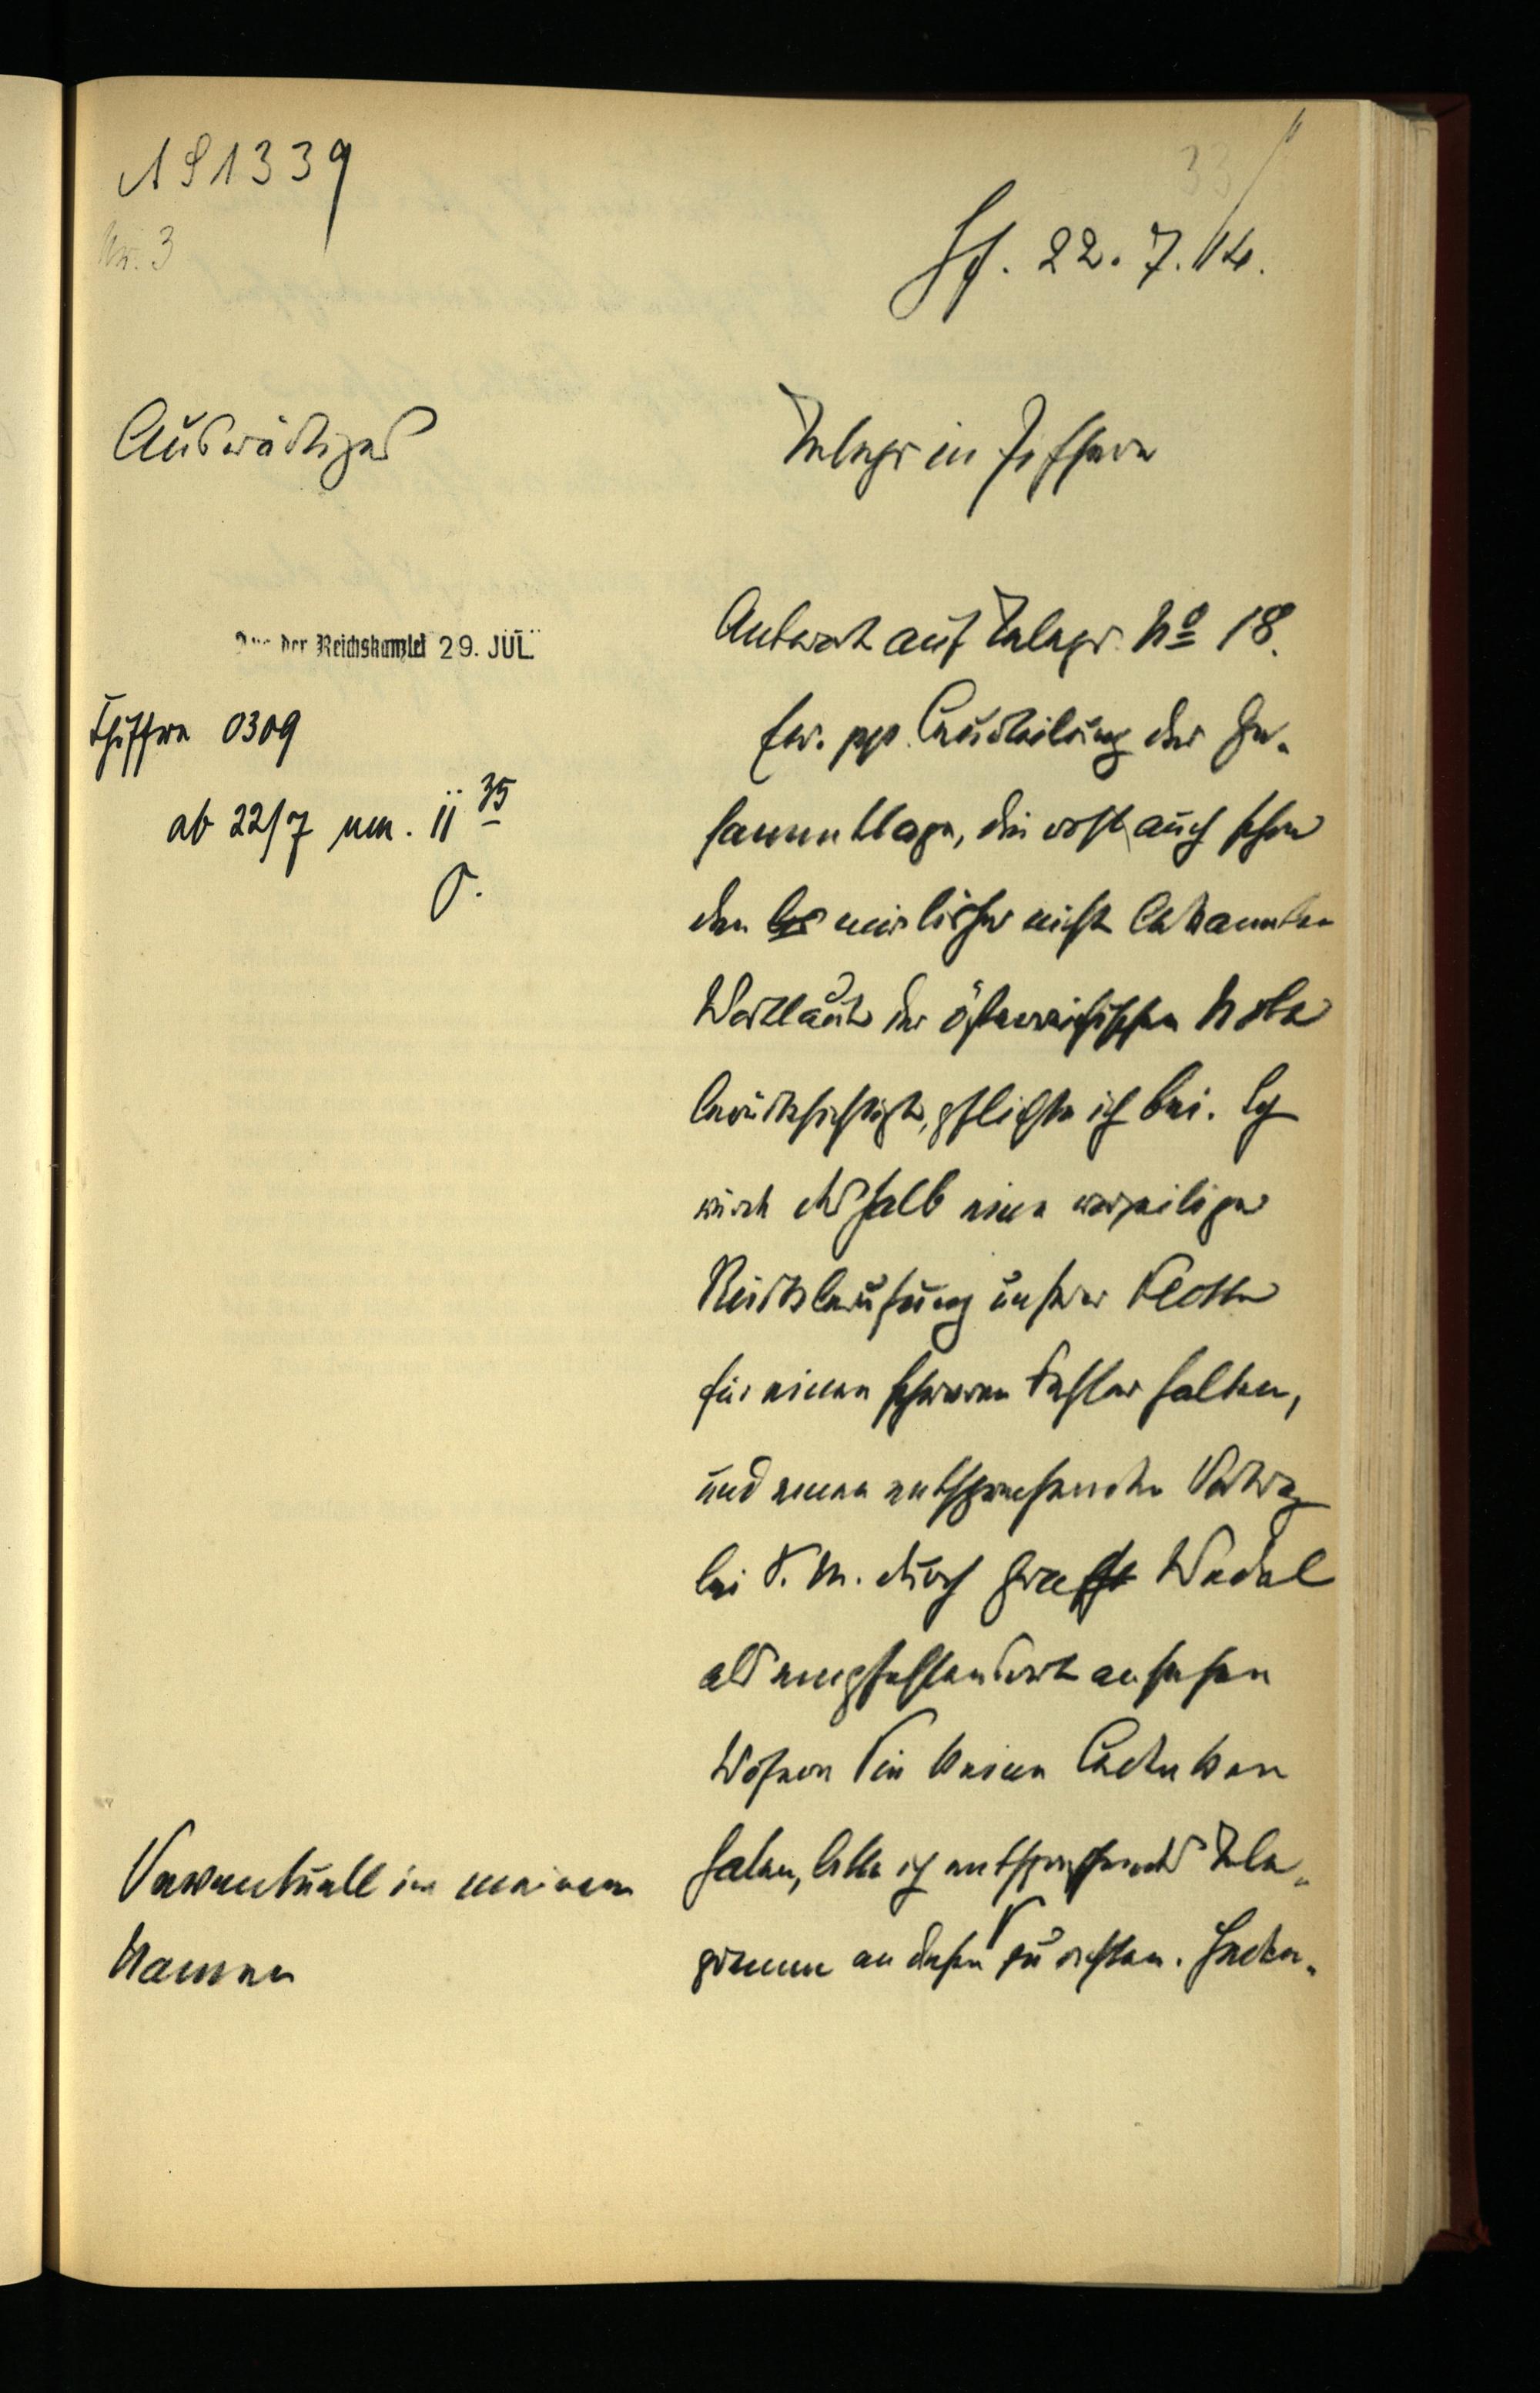 AS 1339
Nr. 3
33
Hf. 22. 7. 14.
Auswärtiges
Telegr in Ziffern
Aus der Reichskanzlei 29. JUL
Antwort auf Telegr. No 18.
Chiffre 0309
ab 22/7 nm. 11 35
Ew. pp. Beurteilung der Ge-
samtlage, die wohl auch schon
den mir bisher nicht bekannten
Wortlaut der österreichischen Note
berücksichtigt, pflichte ich bei. Ich
würde deshalb eine vorzeitige
Rückberufung unserer Flotte
für einen schweren Fehler halten,
und einen entsprechenden Vortrag
bei S. M. durch Graf Wedel
als empfehlenswert ansehen
Wofern Sie keine Bedenken
haben, bitte ich entsprechendes Tele-
gramm an diesen zu richten. Inden-
Eventuell in meinem
Namen